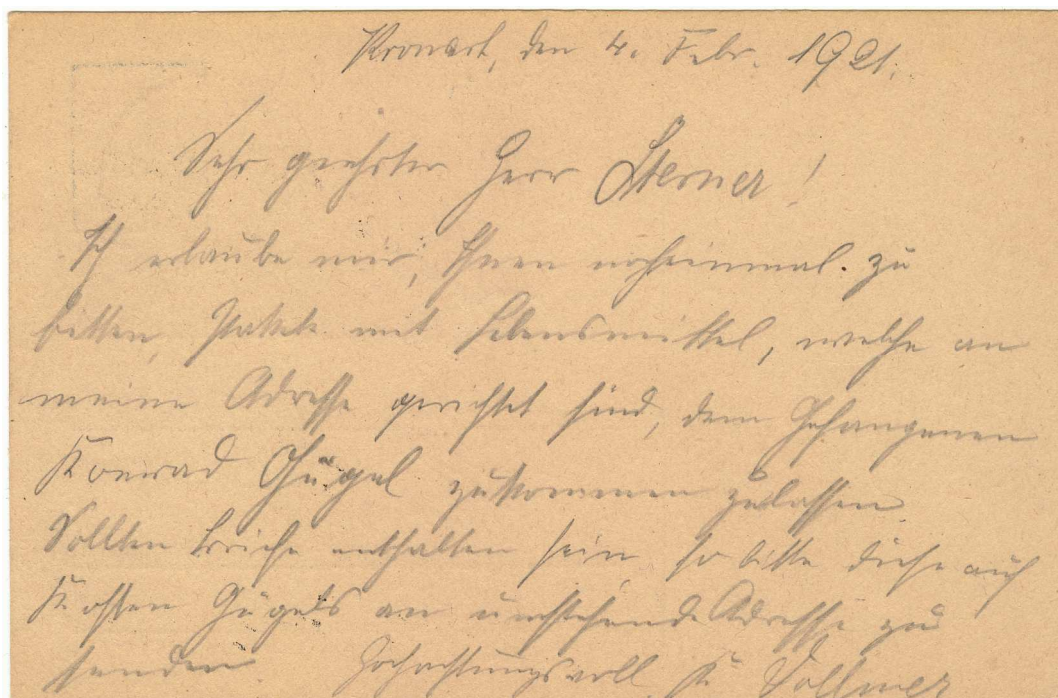 Kronach, den 4. Febr. 1921.
Sehr geehrter Herr Sterner!
Ich erlaube mir, Ihnen nocheinmal zu
bitten, Pakete mit Lebensmittel, welche an
meine Adresse gerichtet sind, dem Gefangenen
Konrad Gügel zukommen zulassen
Sollten Briefe enthalten sein, so bitte diese auf
Kosten Gügels an umstehende Adresse zu
senden. Hochachtungsvoll K. Vollmer